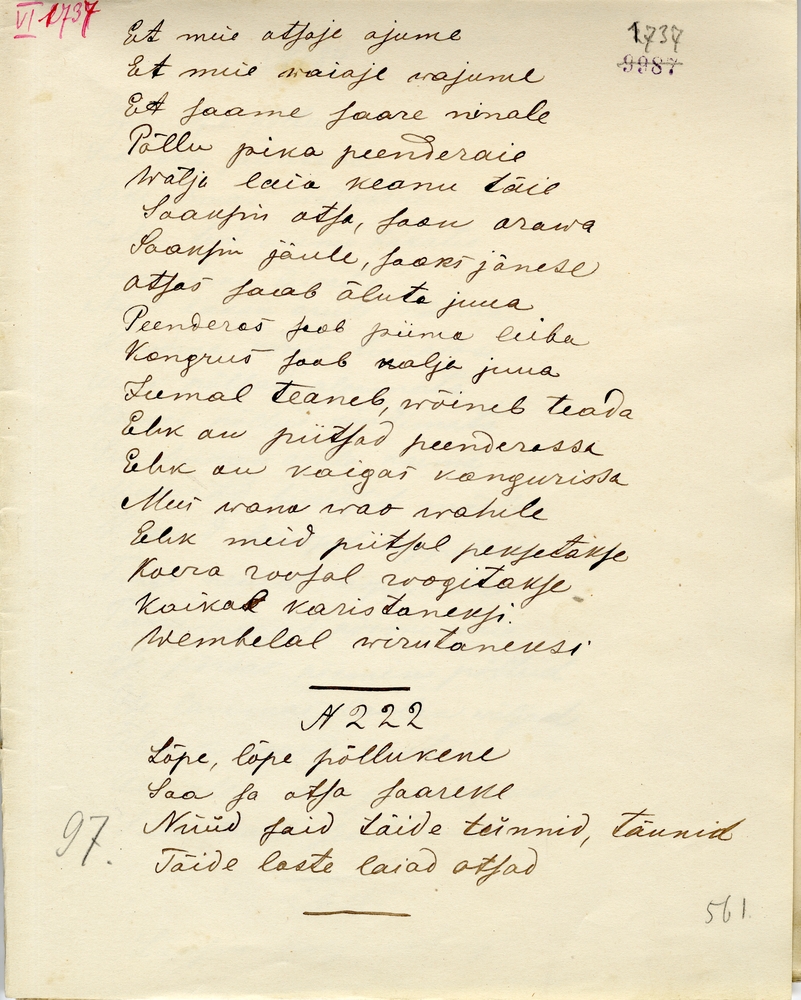 VI 1737
1737
9987
Et meie otsaje ajume
Et meie waiaje wajume
Et saame saare ninale
Põllu pika peenderaie
Wälja laia keanu täie
Saaksin otsa, saan orawa
Saaksin jäule, saaks jänese
Otsas saab õluta juua
Peenderas saab piima leiba
Kangrus saab kalja juua
Jumal teaneb, wõineb teada
Ehk on piitsad peenderassa
Ehk on kaigas kangurissa
Meis wana wao wahele
Ehk meid piitsal peksetakse
Koera roosal roogitakse
Kaikal karistaneksi.
Wembelal wirutaneksi
N 222
Lõpe, lõpe põllukene
Saa sa otsa saareke
97. Nüüd said täide tünnid, täunid
Täide laste laiad otsad
561